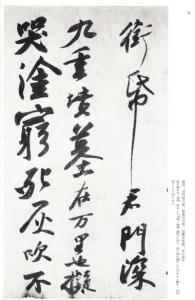 銜帋君門深
九重墳墓在万里也擬
哭塗窮死灰吹不